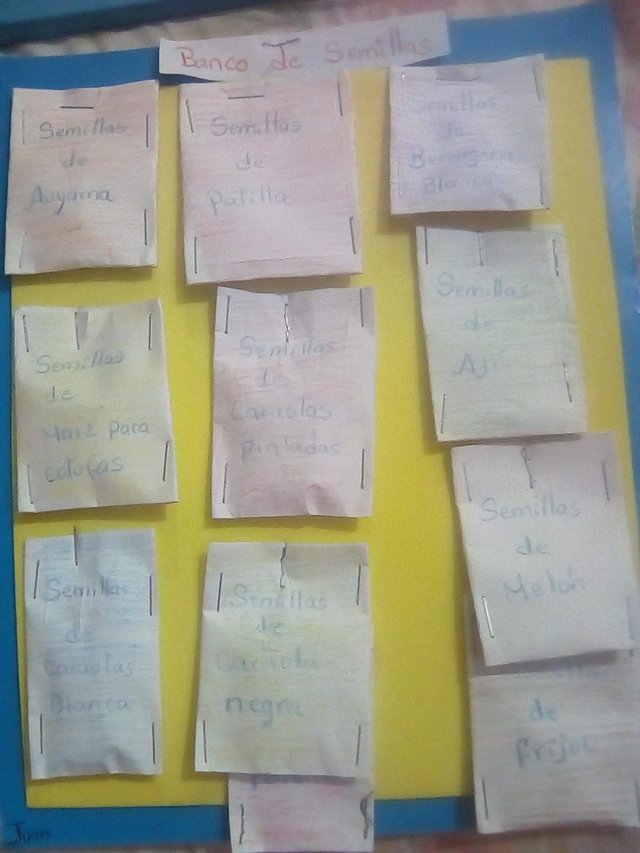 Banco De Semillas
Semillas
de
Auyama
Semillas
de
Patilla
Semillas
de
Berengena
Blanca
Semillas
de
Maiz para
cotufas
Semillas
de
Caraotas
pintadas
Semillas
de
Aji
Semillas
de
Caraotas
Blanca
Semillas
de
Caraota
negra
Semillas
de
Melon
de
frijol
Juan